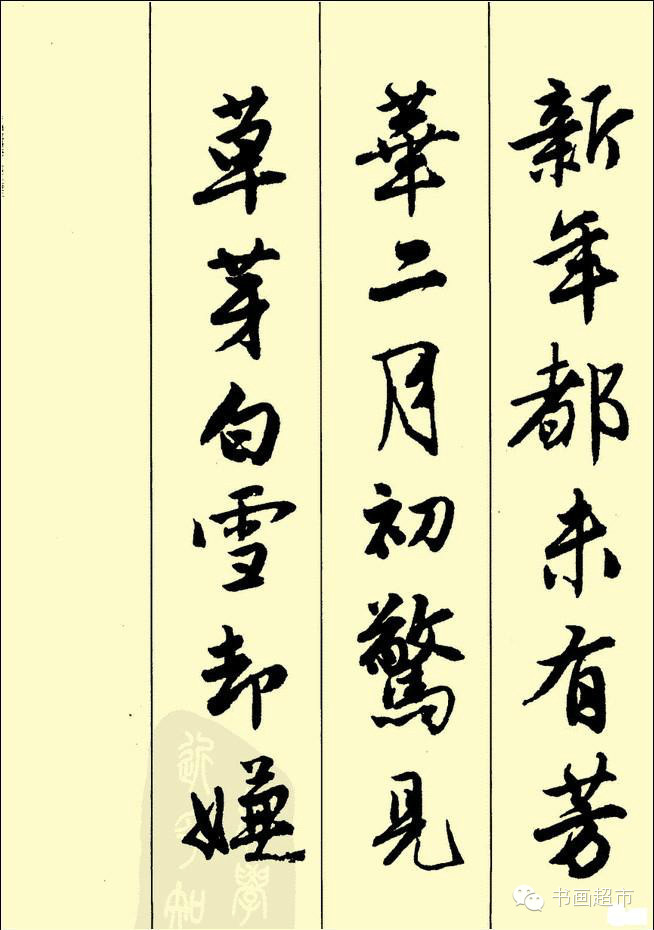 新年都未有芳
華二月初驚見
草芽白雪却嫌
书画超市